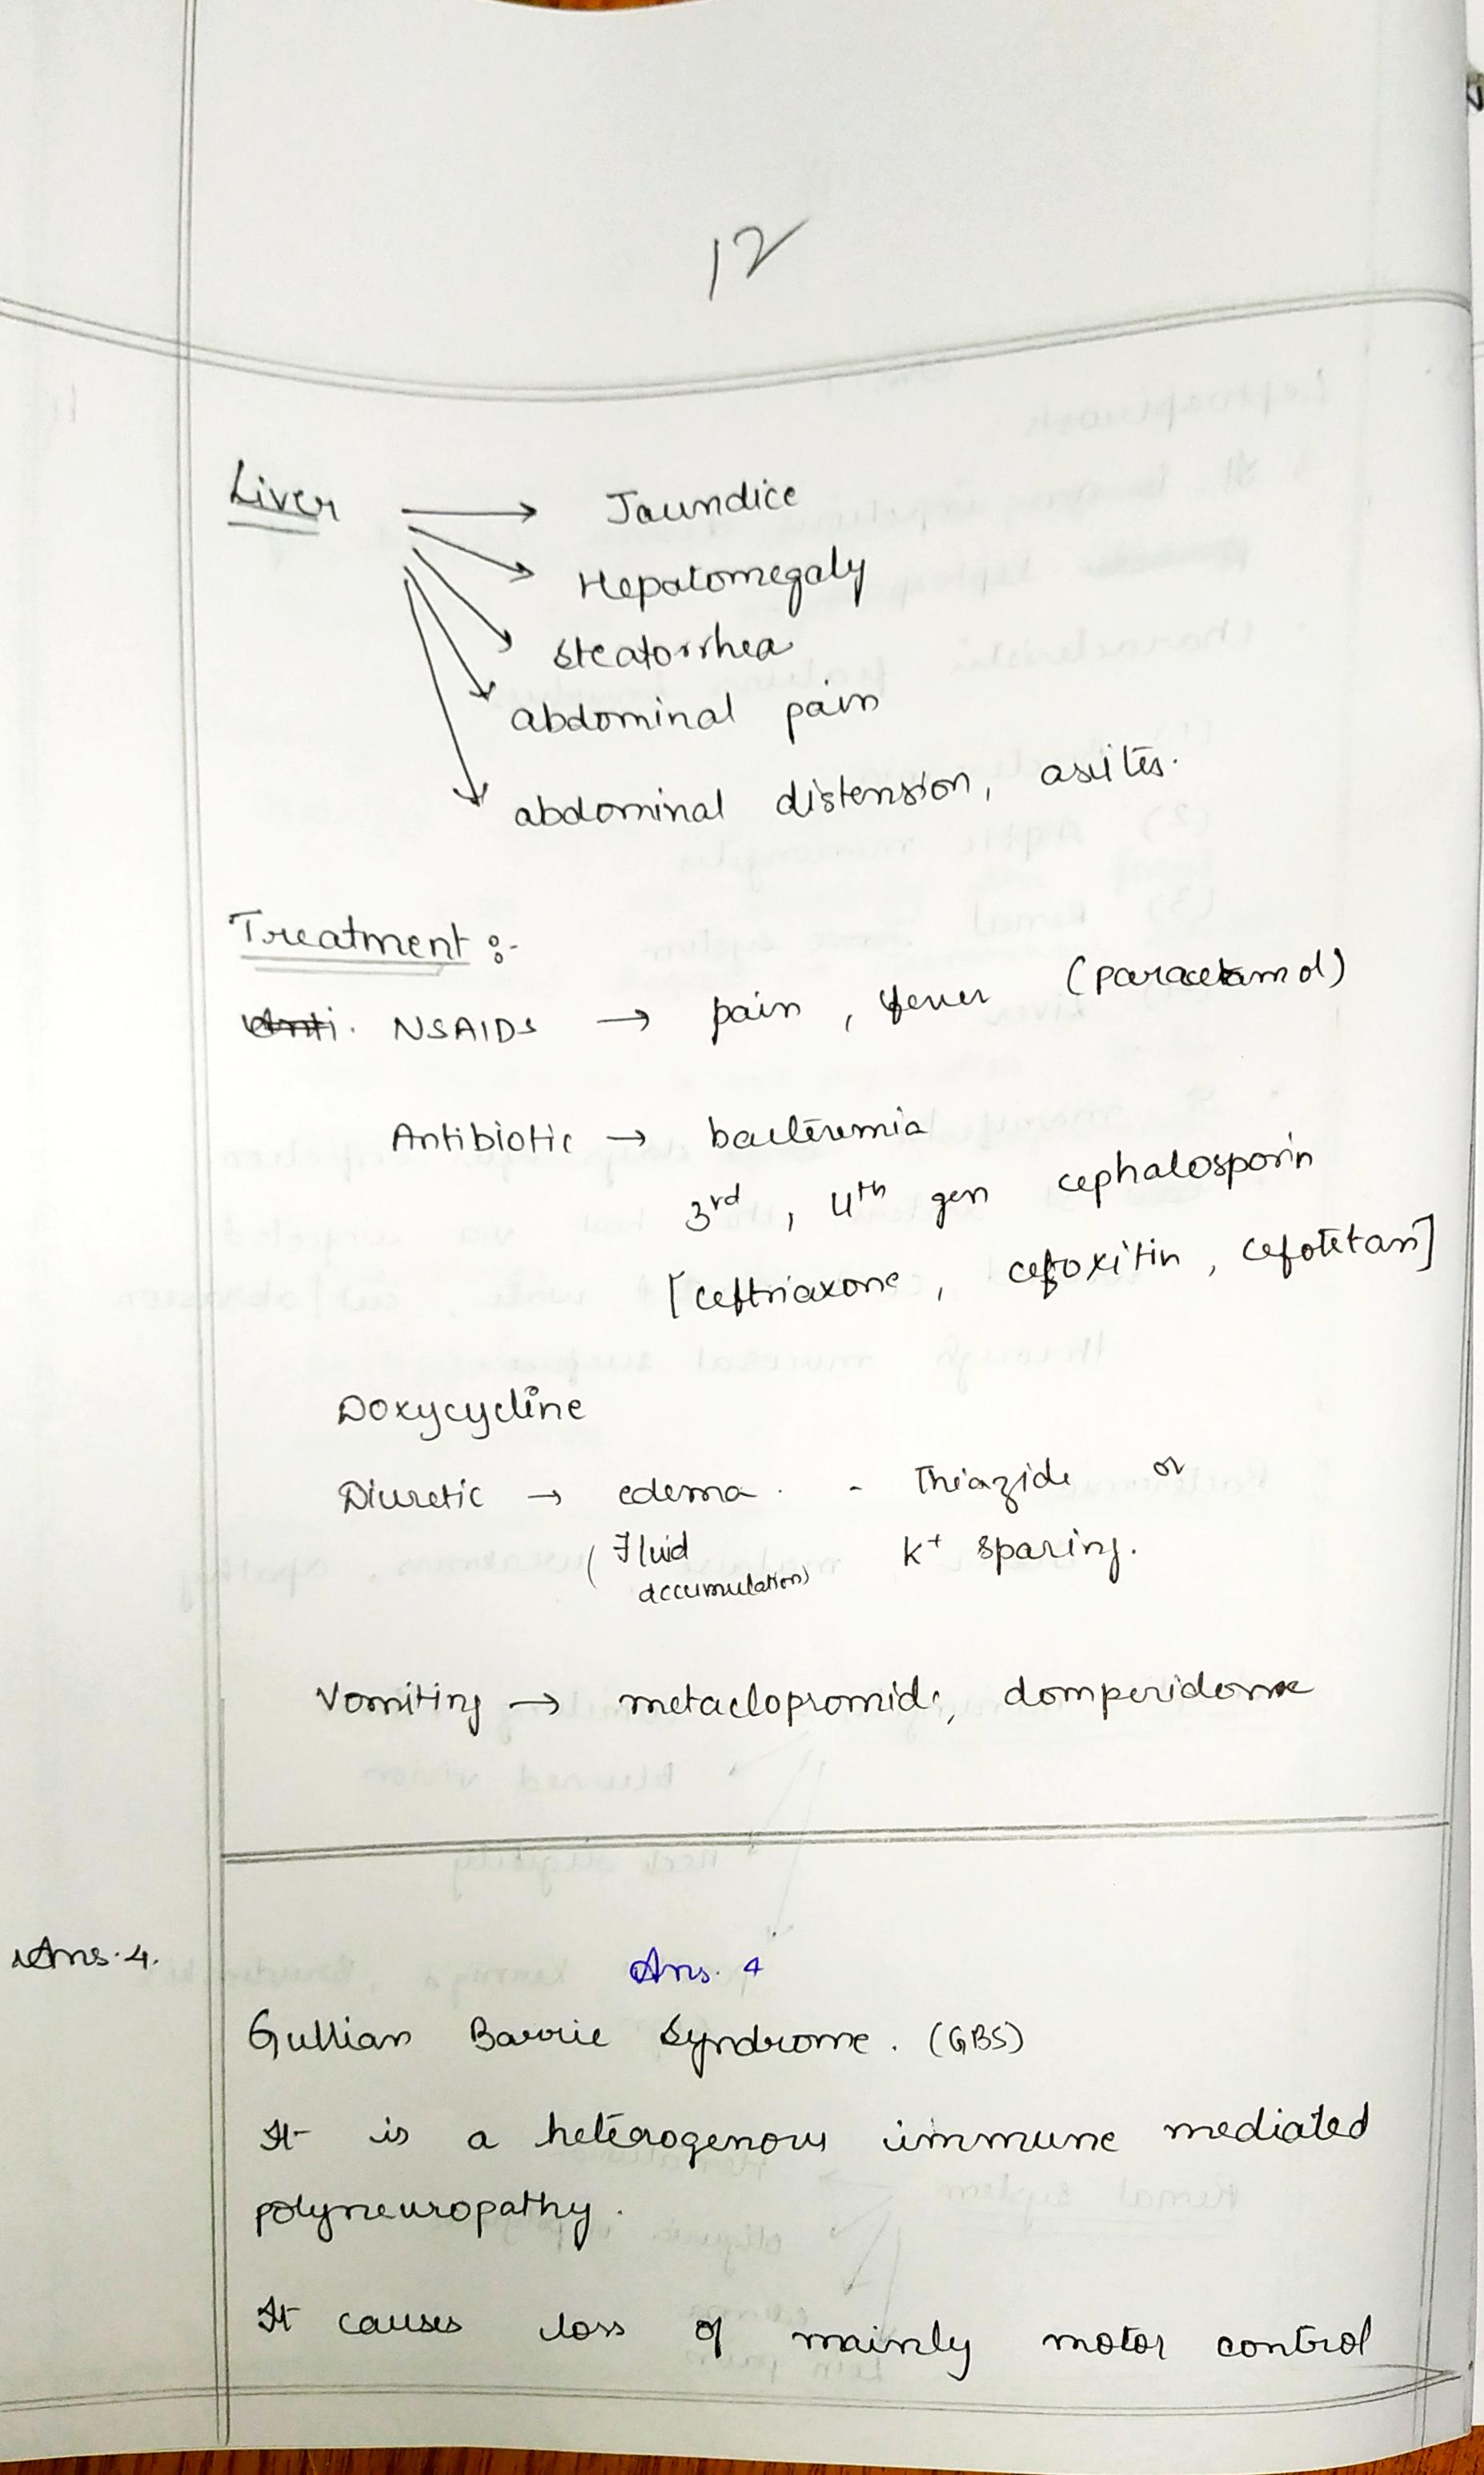 12
Liver → Jaundice
Hepatomegaly
steatorrhea
abdominal pain
abdominal distension, asites.
Treatment :-
Anti. NSAIDs → pain, fever (paracetamol)
Antibiotic → bacteremia
3rd, 4th gen cephalosporin
[ceftriaxone, cefoxitin, cefotetan]
Doxycycline
Diuretic → edema. - Thiazide or
(Fluid accumulation) K+ sparing.
Vomiting → metaclopromide, domperidone
Ans. 4.
Ans. 4
Gullian Barrie Syndrome. (GBS)
It is a heterogenous immune mediated
polyneuropathy.
It causes loss of mainly motor control